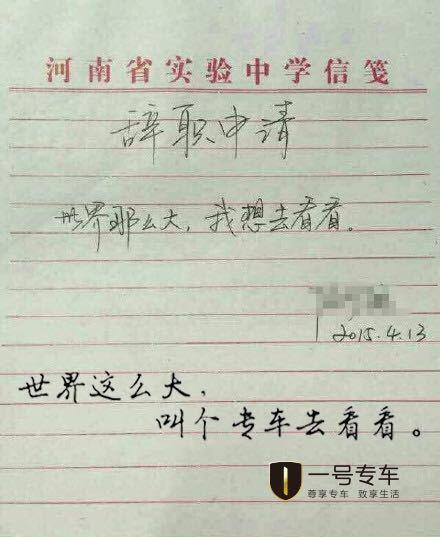 河南省实验中学信笺
辞职申请
世界那么大，我想去看看。
2015.4.13
世界这么大，
叫个专车去看看。
一号专车
尊享专车 致享生活